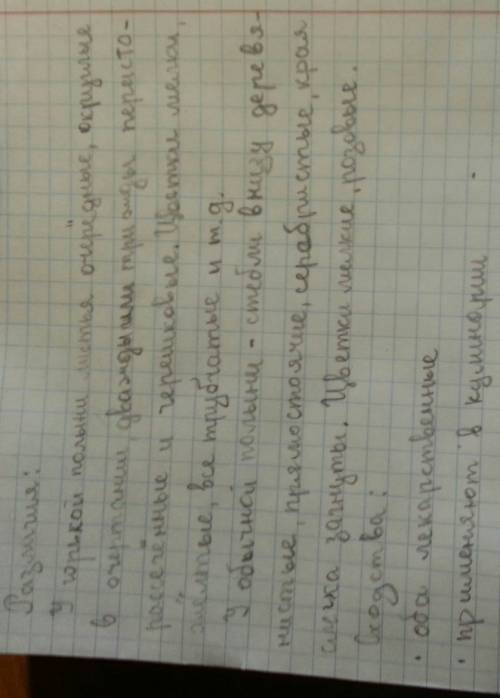 Различия:
У горькой полыни листья очерёдные, округлые
в очертании, дважды или трижды перисто-
рассечённые и черешковые. Цветки мелки,
жёлтые, все трубчатые и т.д.
У обычной полыни - стебли внизу деревя-
нистые, прямостоячие, серебристые, края
слегка загнуты. Цветки мелкие, розовые.
Сходства:
· оба лекарственные
· применяют в кулинарии